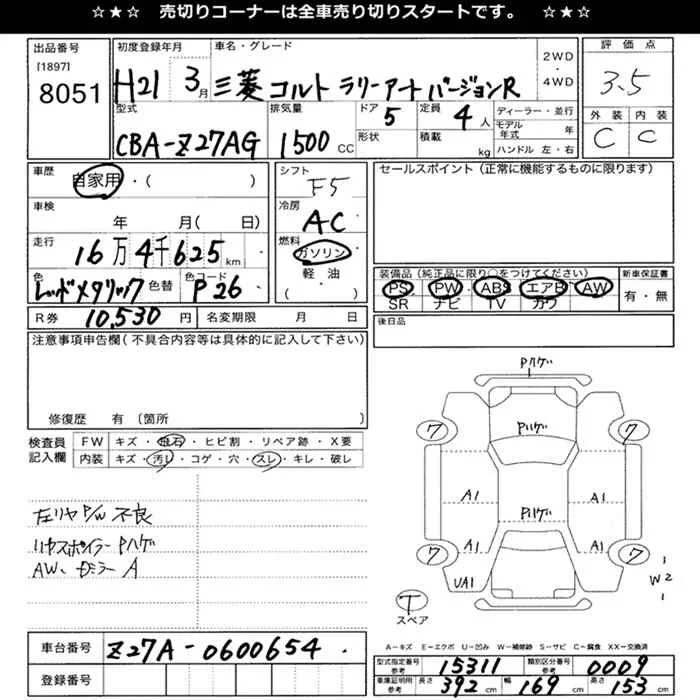 ☆★☆ 売切りコーナーは全車売り切りスタートです。 ☆★☆
出品番号 初度登録年月 車名・グレード 評価点
[1897] 8051 H21 3月 三菱 コルト ラリーアート バージョンR 2WD・4WD 3.5
型式 排気量 ドア 定員 ディーラー・並行 外装 内装
CBA-Z27AG 1500CC 5 4人 モデル年式 年 C C
形状 積載 kg ハンドル 左・右
車歴 自家用・( ) シフト F5 セールスポイント(正常に機能するものに限ります)
車検 年 月( 日) 冷房 AC
走行 16万4千625km 燃料 ガソリン
色 レッドメタリック 色替 色コード P26 軽・油 ( )
装備品(純正品に限り○をつけてください) 新車保証書
PS PW ABS エアB AW 有・無
SR ナビ TV カワ
R券 10,530円 名変期限 月 日 後日品
注意事項申告欄(不具合内容等は具体的に記入して下さい)
修復歴 有(箇所
検査員記入欄 FW キズ・飛石・ヒビ割・リペア跡・X要
内装 キズ・汚れ・コゲ・穴・スレ・キレ・破レ
左リヤP/W 不良
リヤスポイラーPハゲ
AW、ミラーA
Pハゲ
7 Pハゲ 7
A1 A1
Pハゲ
7 A1 A1 7
UA1 W2
T
スペア
A-キズ E-エクボ U-凹み W-補修跡 S-サビ C-腐食 XX-交換済
車台番号 Z27A-0600654
登録番号
型式指定番号 参考 15311 類別区分番号 参考 0009
車庫証明用 参考 長さ 392cm 幅 169cm 高さ 153cm